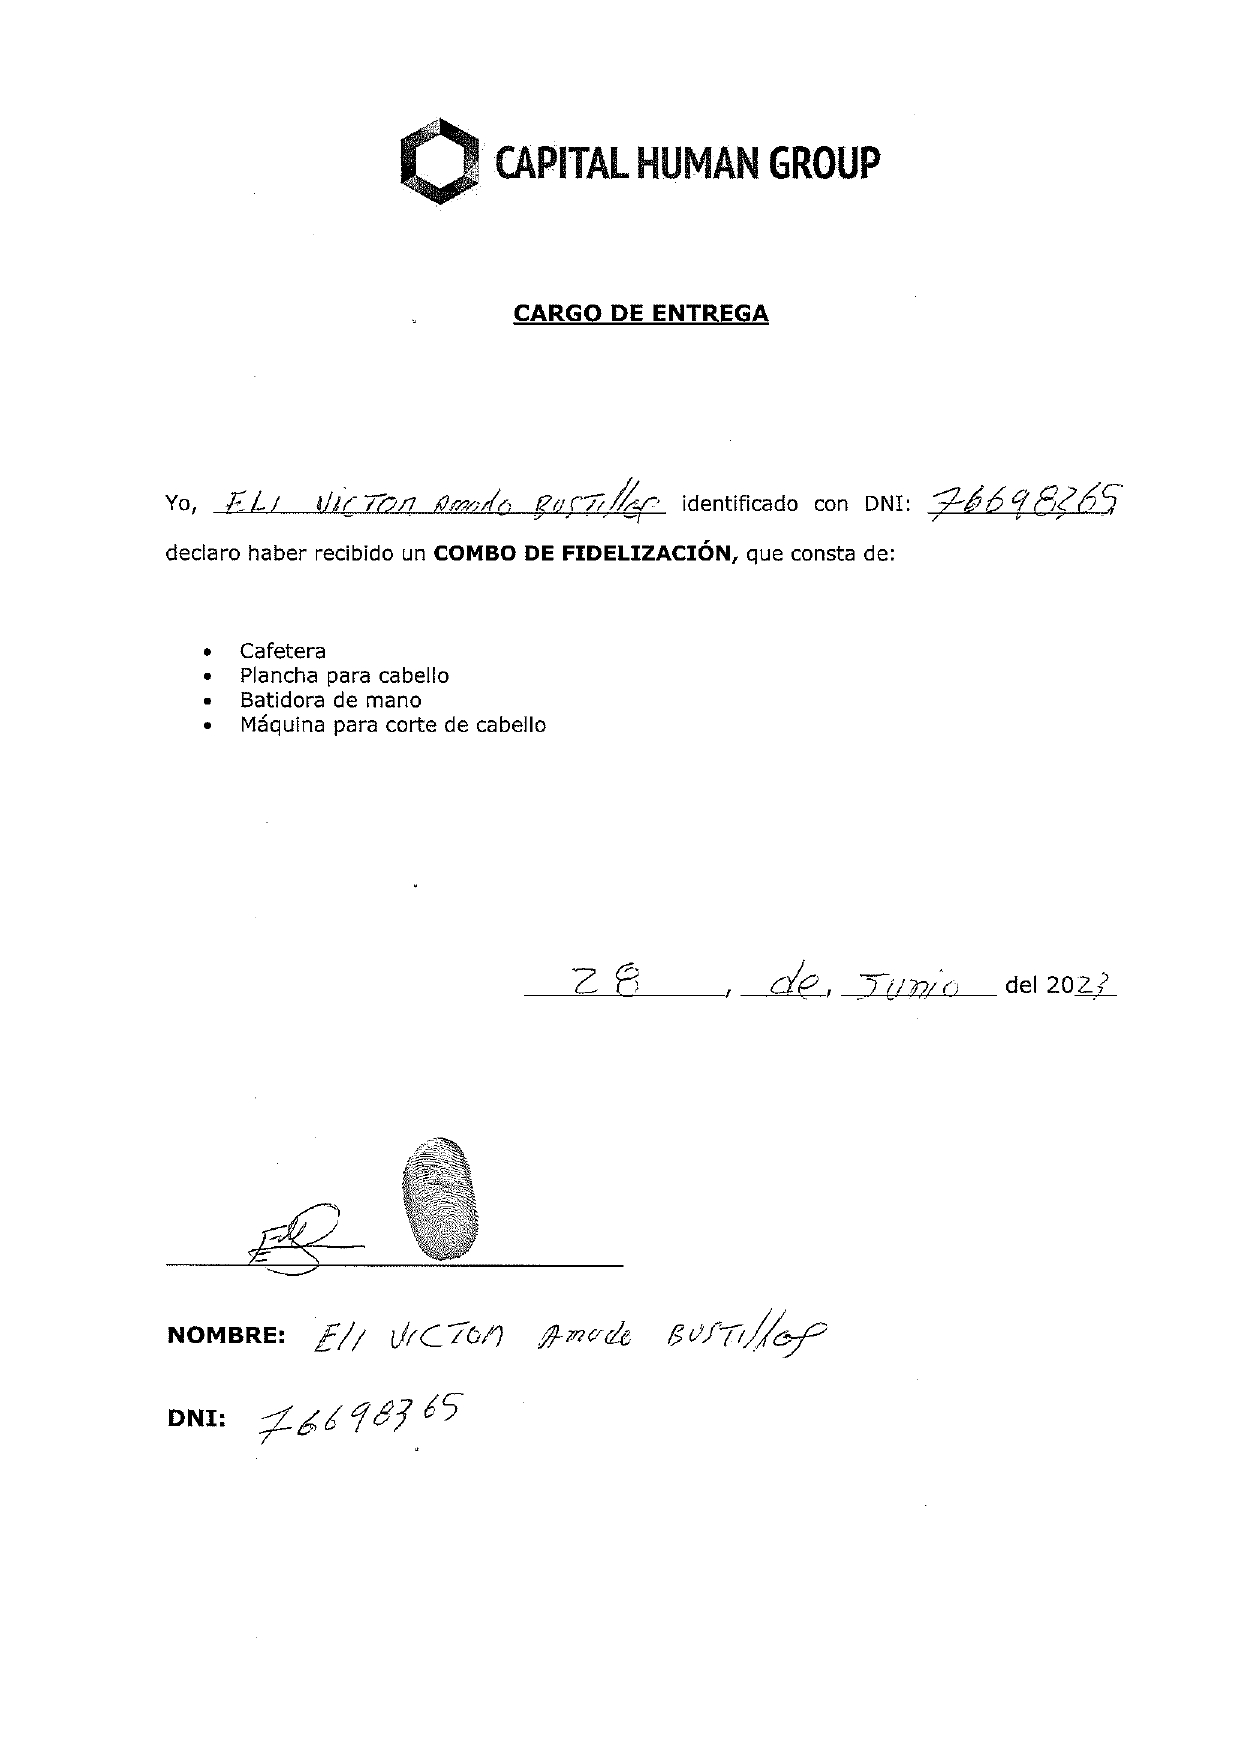 CAPITAL HUMAN GROUP
CARGO DE ENTREGA
Yo, ELI VICTOR Amado BUSTIllos identificado con DNI: 76698365
declaro haber recibido un COMBO DE FIDELIZACIÓN, que consta de:
• Cafetera
• Plancha para cabello
• Batidora de mano
• Máquina para corte de cabello
28, de, Junio del 2023
NOMBRE: Eli VICTOR Amado BUSTIllos
DNI: 76698365